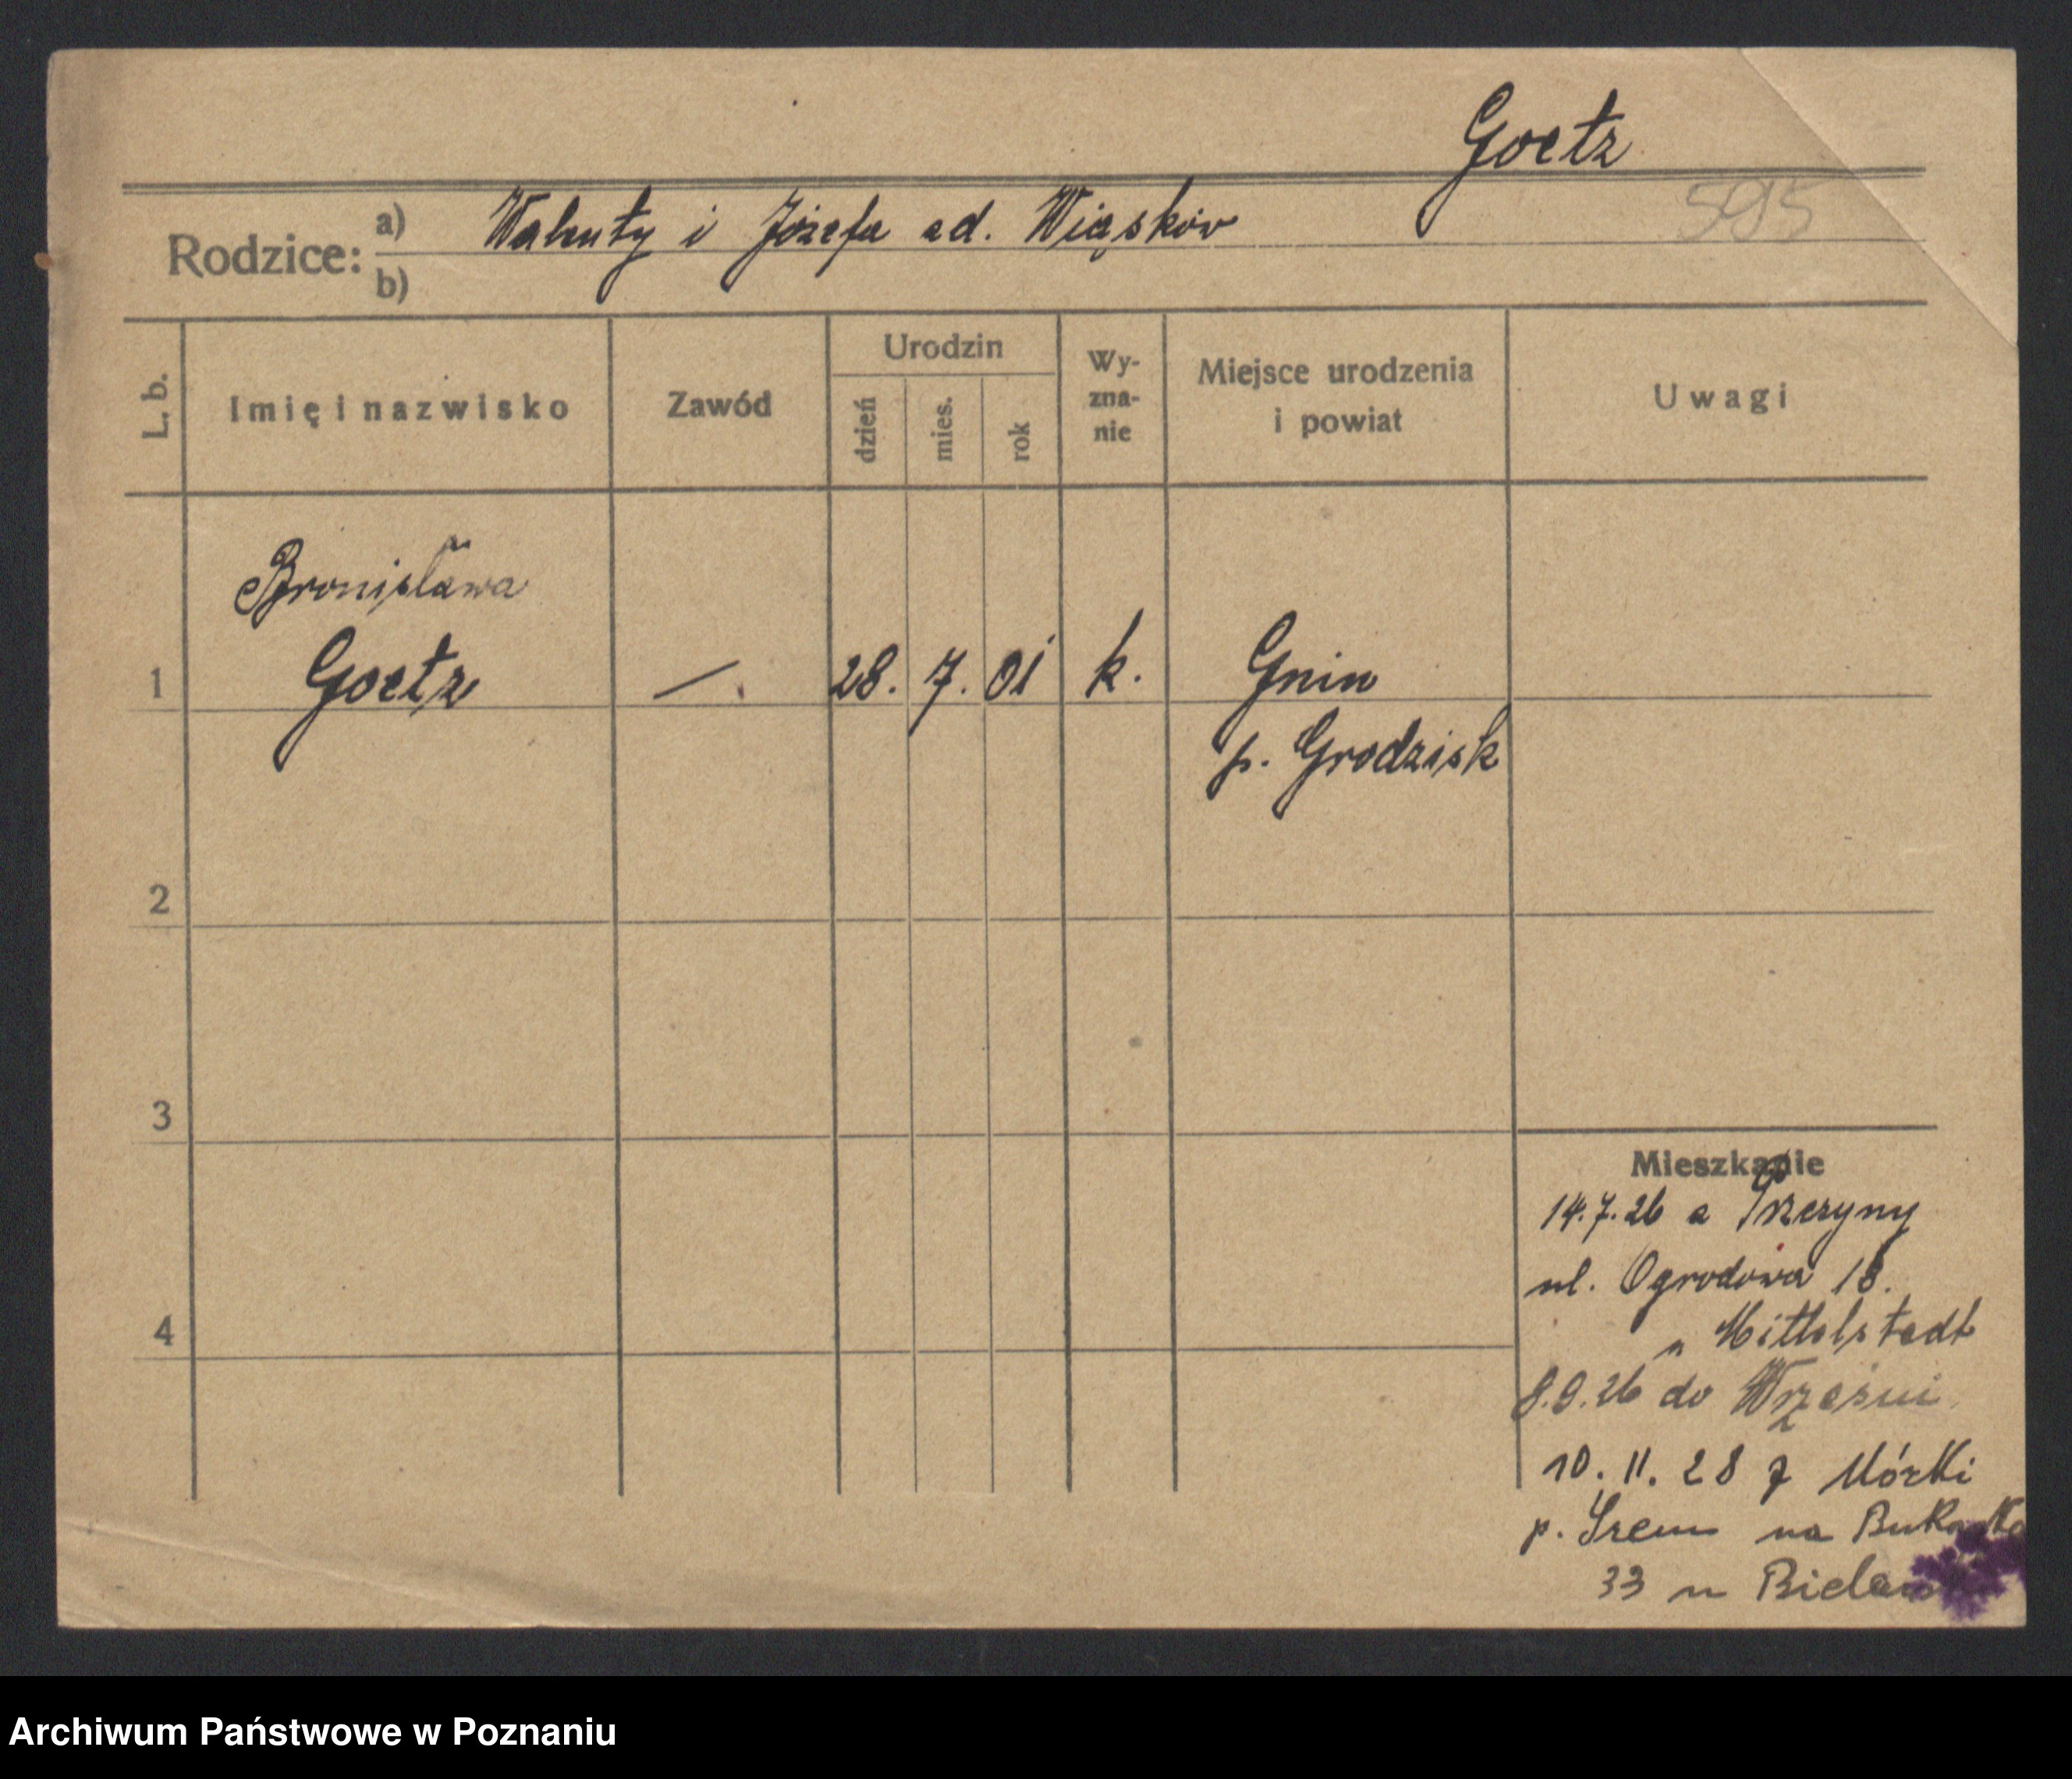 Goetz
595
Rodzice: a) Walenty i Józefa ad. Wiąsków
b)
L. b.
Imię i nazwisko
Zawód
Urodzin
dzień
mies.
rok
Wy-
zna-
nie
Miejsce urodzenia
i powiat
Uwagi
Bronisława
1 Goetz —. 28. 7. 01 k. Gnin
p. Grodzisk
2
3
4
Mieszkanie
14.7.26 a
ul. Ogrodowa 18.
" Mittelstedt
8.9.26 do Wrześni
10. 11. 28 z Mórki
p. Śrem na
33 u
Archiwum Państwowe w Poznaniu